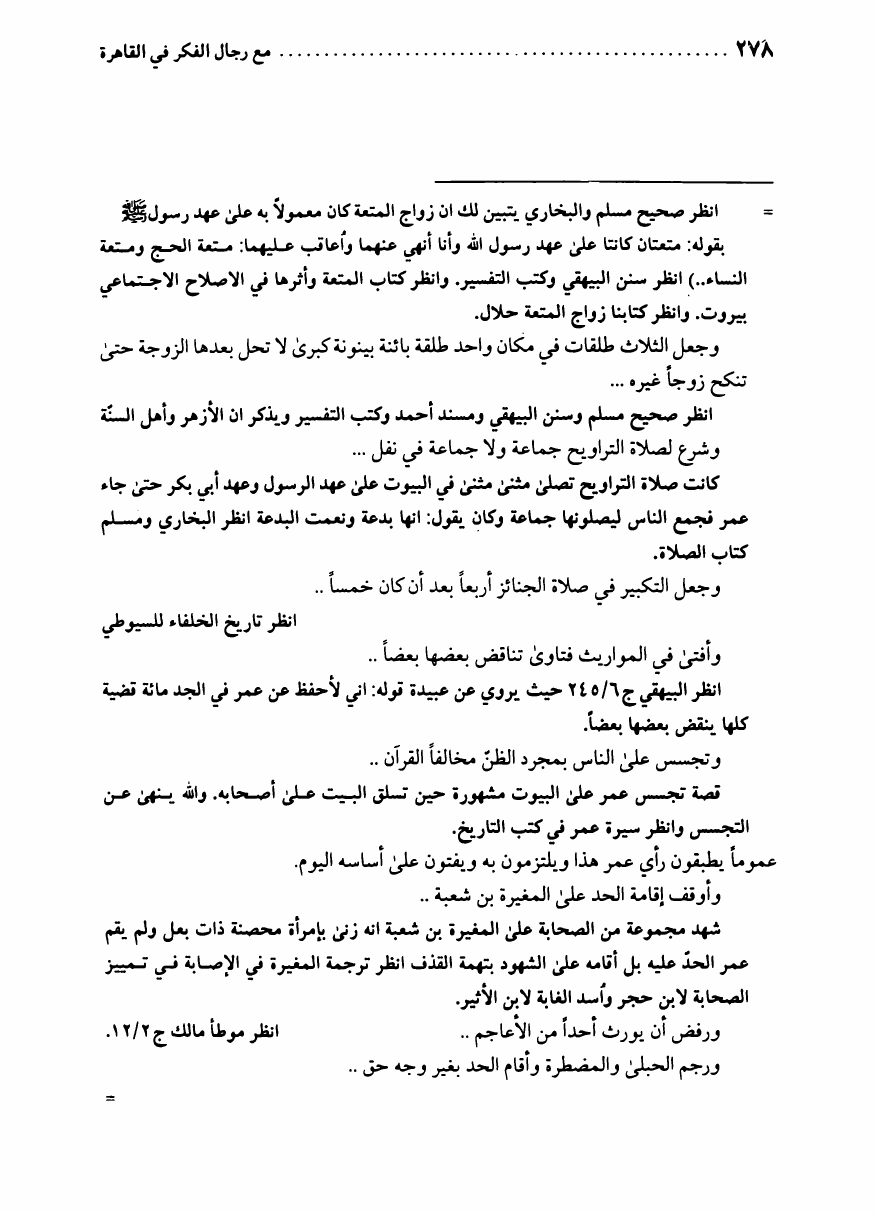 ٢٧٨ ................................................ مع رجال الفكر في القاهرة
= انظر صحيح مسلم والبخاري يتبين لك ان زواج المتعة كان معمولاً به على عهد رسولﷺ
بقوله: متعتان كانتا على عهد رسول الله وأنا أنهي عنهما وأعاقب عليهما: متعة الحج ومتعة
النساء..) انظر سنن البيهقي وكتب التفسير. وانظر كتاب المتعة وأثرها في الاصلاح الاجتماعي
بيروت. وانظر كتابنا زواج المتعة حلال.
وجعل الثلاث طلقات في مكان واحد طلقة بائنة بينونة كبرىٰ لا تحل بعدها الزوجة حتىٰ
تنكح زوجاً غيره ...
انظر صحيح مسلم وسنن البيهقي ومسند أحمد وكتب التفسير ويذكر ان الأزهر وأهل السنّة
وشرع لصلاة التراويح جماعة ولا جماعة في نفل ...
كانت صلاة التراويح تصلىٰ مثنىٰ مثنىٰ في البيوت علىٰ عهد الرسول وعهد أبي بكر حتىٰ جاء
عمر فجمع الناس ليصلونها جماعة وكان يقول: انها بدعة ونعمت البدعة انظر البخاري ومسلم
كتاب الصلاة.
وجعل التكبير في صلاة الجنائز أربعاً بعد أن كان خمساً ..
انظر تاريخ الخلفاء للسيوطي
وأفتىٰ في المواريث فتاوىٰ تناقض بعضها بعضاً ..
انظر البيهقي ج٢٤٥/٦ حيث يروي عن عبيدة قوله: اني لأحفظ عن عمر في الجد مائة قضية
كلها ينقض بعضها بعضاً.
وتجسس علىٰ الناس بمجرد الظنّ مخالفاً القرآن ..
قصة تجسس عمر علىٰ البيوت مشهورة حين تسلق البيت علىٰ أصحابه. والله ينهىٰ عن
التجسس وانظر سيرة عمر في كتب التاريخ.
عموماً يطبقون رأي عمر هذا ويلتزمون به ويفتون علىٰ أساسه اليوم.
وأوقف إقامة الحد علىٰ المغيرة بن شعبة ..
شهد مجموعة من الصحابة علىٰ المغيرة بن شعبة انه زنىٰ بإمرأة محصنة ذات بعل ولم يقم
عمر الحدّ عليه بل أقامه علىٰ الشهود بتهمة القذف انظر ترجمة المغيرة في الإصابة في تمييز
الصحابة لابن حجر وأسد الغابة لابن الأثير.
ورفض أن يورث أحداً من الأعاجم .. انظر موطأ مالك ج١٢/٢.
ورجم الحبلىٰ والمضطرة وأقام الحد بغير وجه حق ..
=